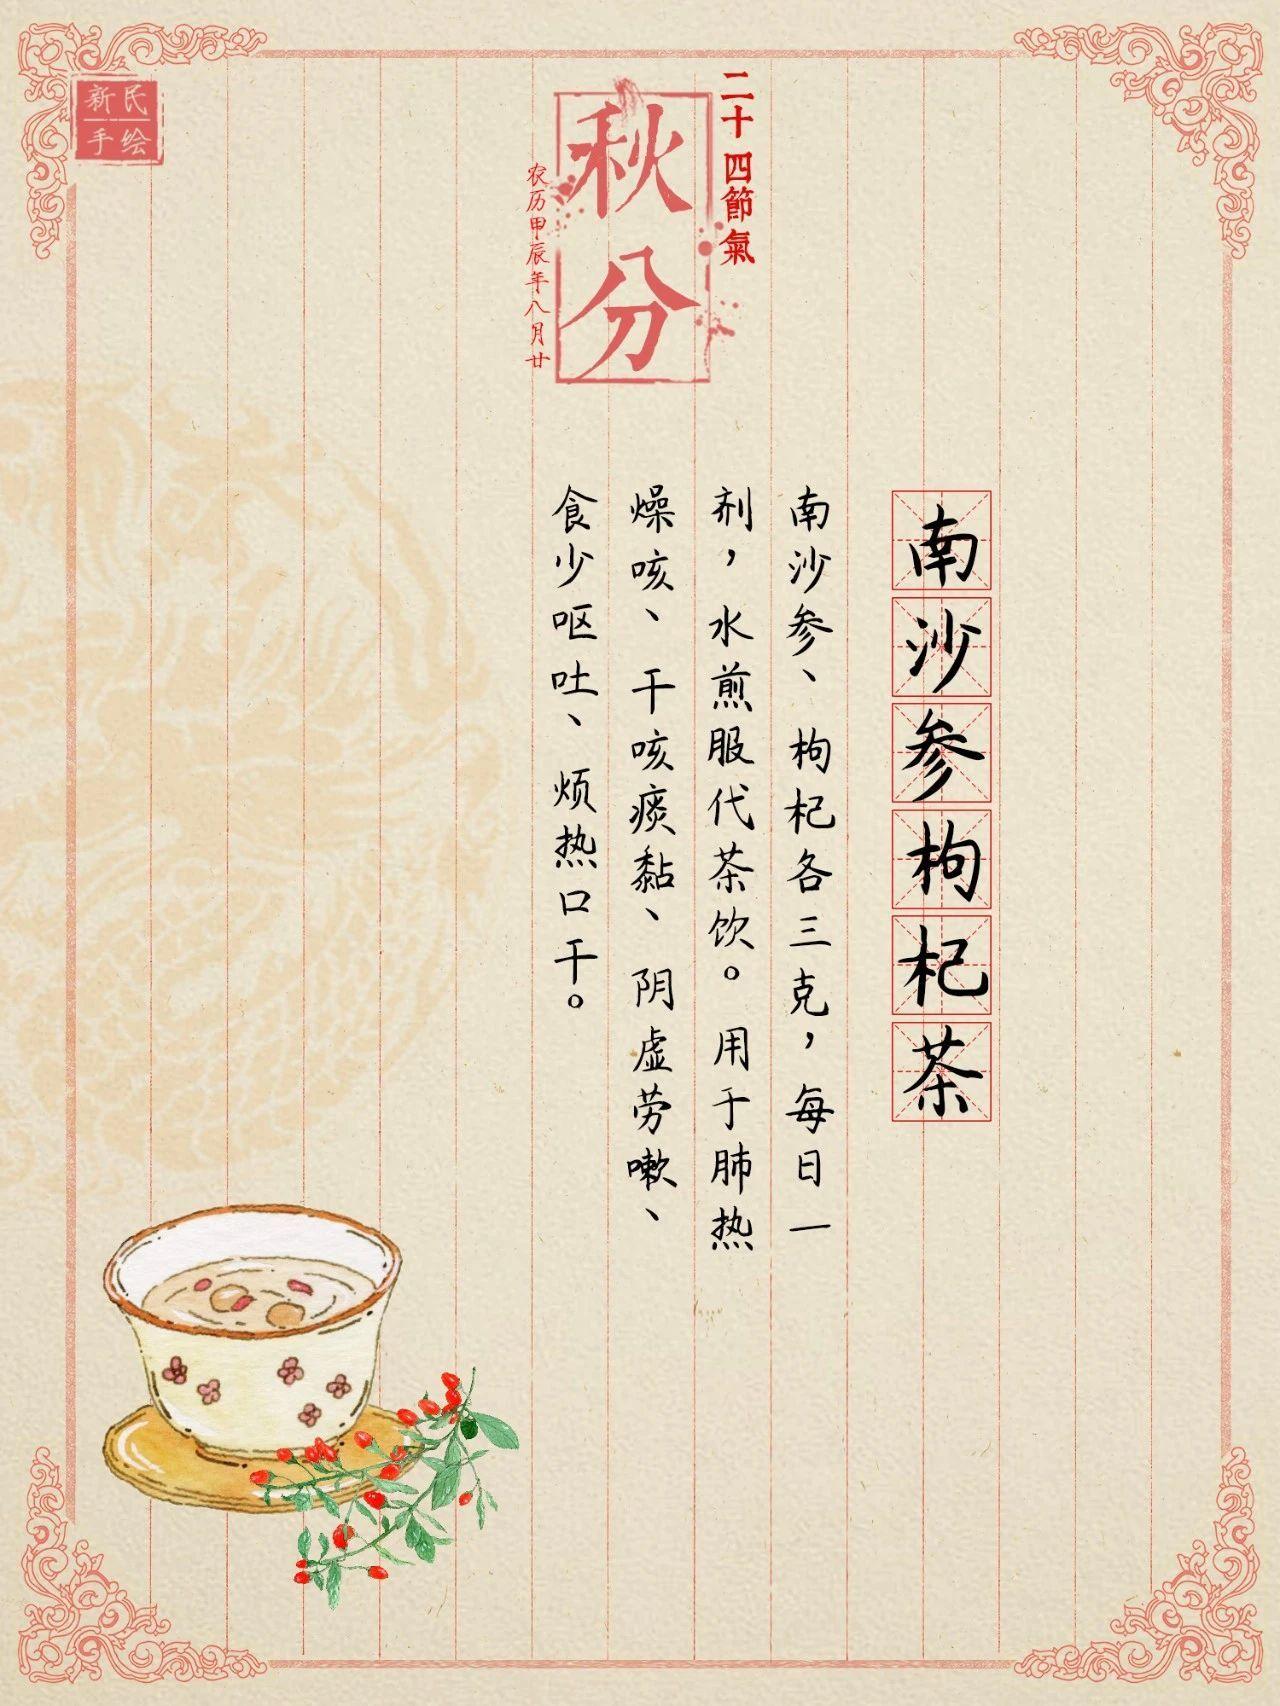 新民
手绘
二十四節氣
秋分
农历甲辰年八月廿
南沙参枸杞茶
南沙参、枸杞各三克，每日一
剂，水煎服代茶饮。用于肺热
燥咳、干咳痰黏、阴虚劳嗽、
食少呕吐、烦热口干。